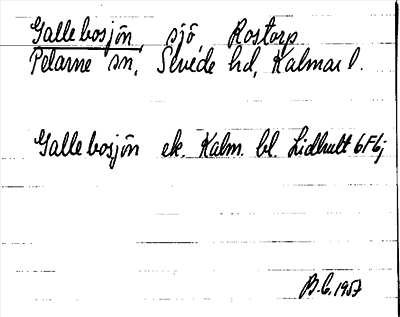 Gallebosjön, sjö, Rostorp
Pelarne sn, Sevede hd, Kalmar l.
Gallebosjön ek. Kalm. bl. Lidhult 6F6j
B.G. 1957